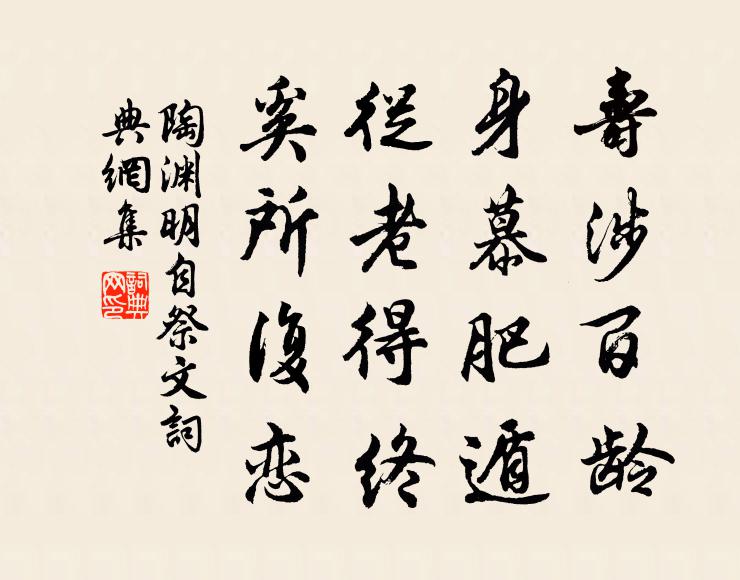 壽涉百龄
身慕肥遁
從老得终
奚所復恋
陶渊明自祭文詞
典網集
詞典
网印